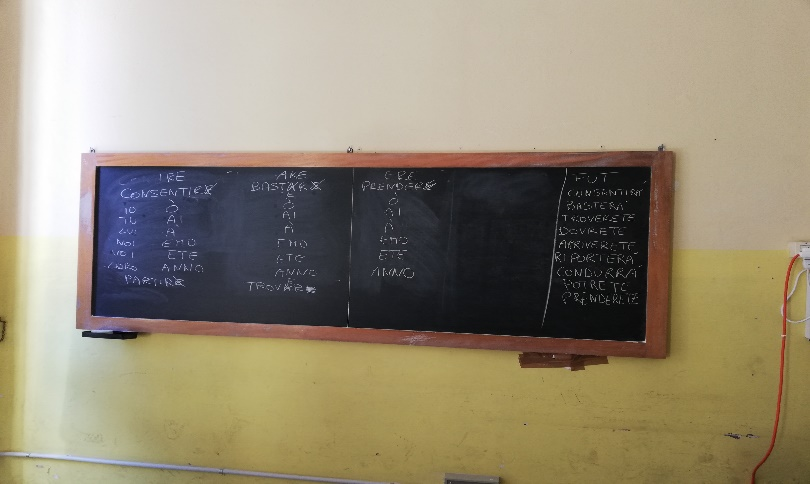 IRE
CONSENTIRE
IO Ò
TU AI
LUI À
NOI EMO
VOI ETE
LORO ANNO
PARTIRE
ARE
BASTARE
E
Ò
AI
À
EMO
ETE
ANNO
TROVARE
ERE
PRENDERE
Ò
AI
À
EMO
ETE
ANNO
FUT
CONSENTIRÀ
BASTERÀ
TROVERETE
DOVRETE
ARRIVERETE
RIPORTERÀ
CONDURRÀ
POTRETE
PRENDERETE